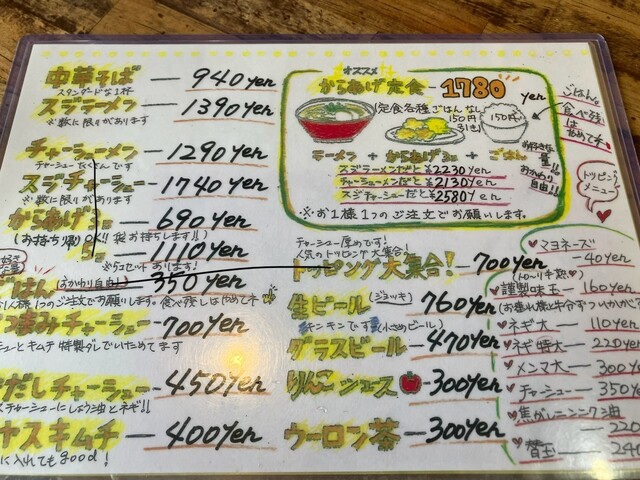 中華そば — 940yen
スタンダードな1杯
スジラーメン — 1390yen
※数に限りがあります
チャーシューメン — 1290yen
チャーシューたくさんです
スジチャーシュー — 1740yen
※数に限りがあります
からあげ3コ — 690yen
(お持ち帰りOK!!
5コ — 1110yen
ごはん(おかわり自由) — 350yen
お1人様1つのご注文でお願いします。食べ残しはやめて
つまみチャーシュー — 700yen
シューとキムチ 特製ダレでいためてます
だしチャーシュー — 450yen
チャーシューにしょう油とネギ!!
ヤスキムチ — 400yen
に入れてもgood!
オススメ
からあげ定食 — 1780yen
(定食各種ごはんなし
150円引き)
150円
ラーメン + からあげ3コ + ごはん
スジラーメンだと ¥2230yen
チャーシューメンだと ¥2130yen
スジチャーシューだと ¥2580yen
※お1人様1つのご注文でお願いします。
お好きな量!!
おかわり自由!!
ごはん。
食べ残しは
やめてネ
チャーシュー厚めです!
人気のトッピング大集合!
トッピング大集合! — 700yen
生ビール(ジョッキ) 760yen
キンキンです(小さめビール)
グラスビール — 470yen
りんごジュース — 300yen
ウーロン茶 — 300yen
トッピングメニュー
マヨネーズ — 40yen
(ト〜リキ熟)
謹製味玉 — 160yen
ネギ大 — 110yen
ネギ特大 — 220yen
メンマ大 — 300yen
チャーシュー — 350y
焦がしニンニク油 — 220
替玉 — 240